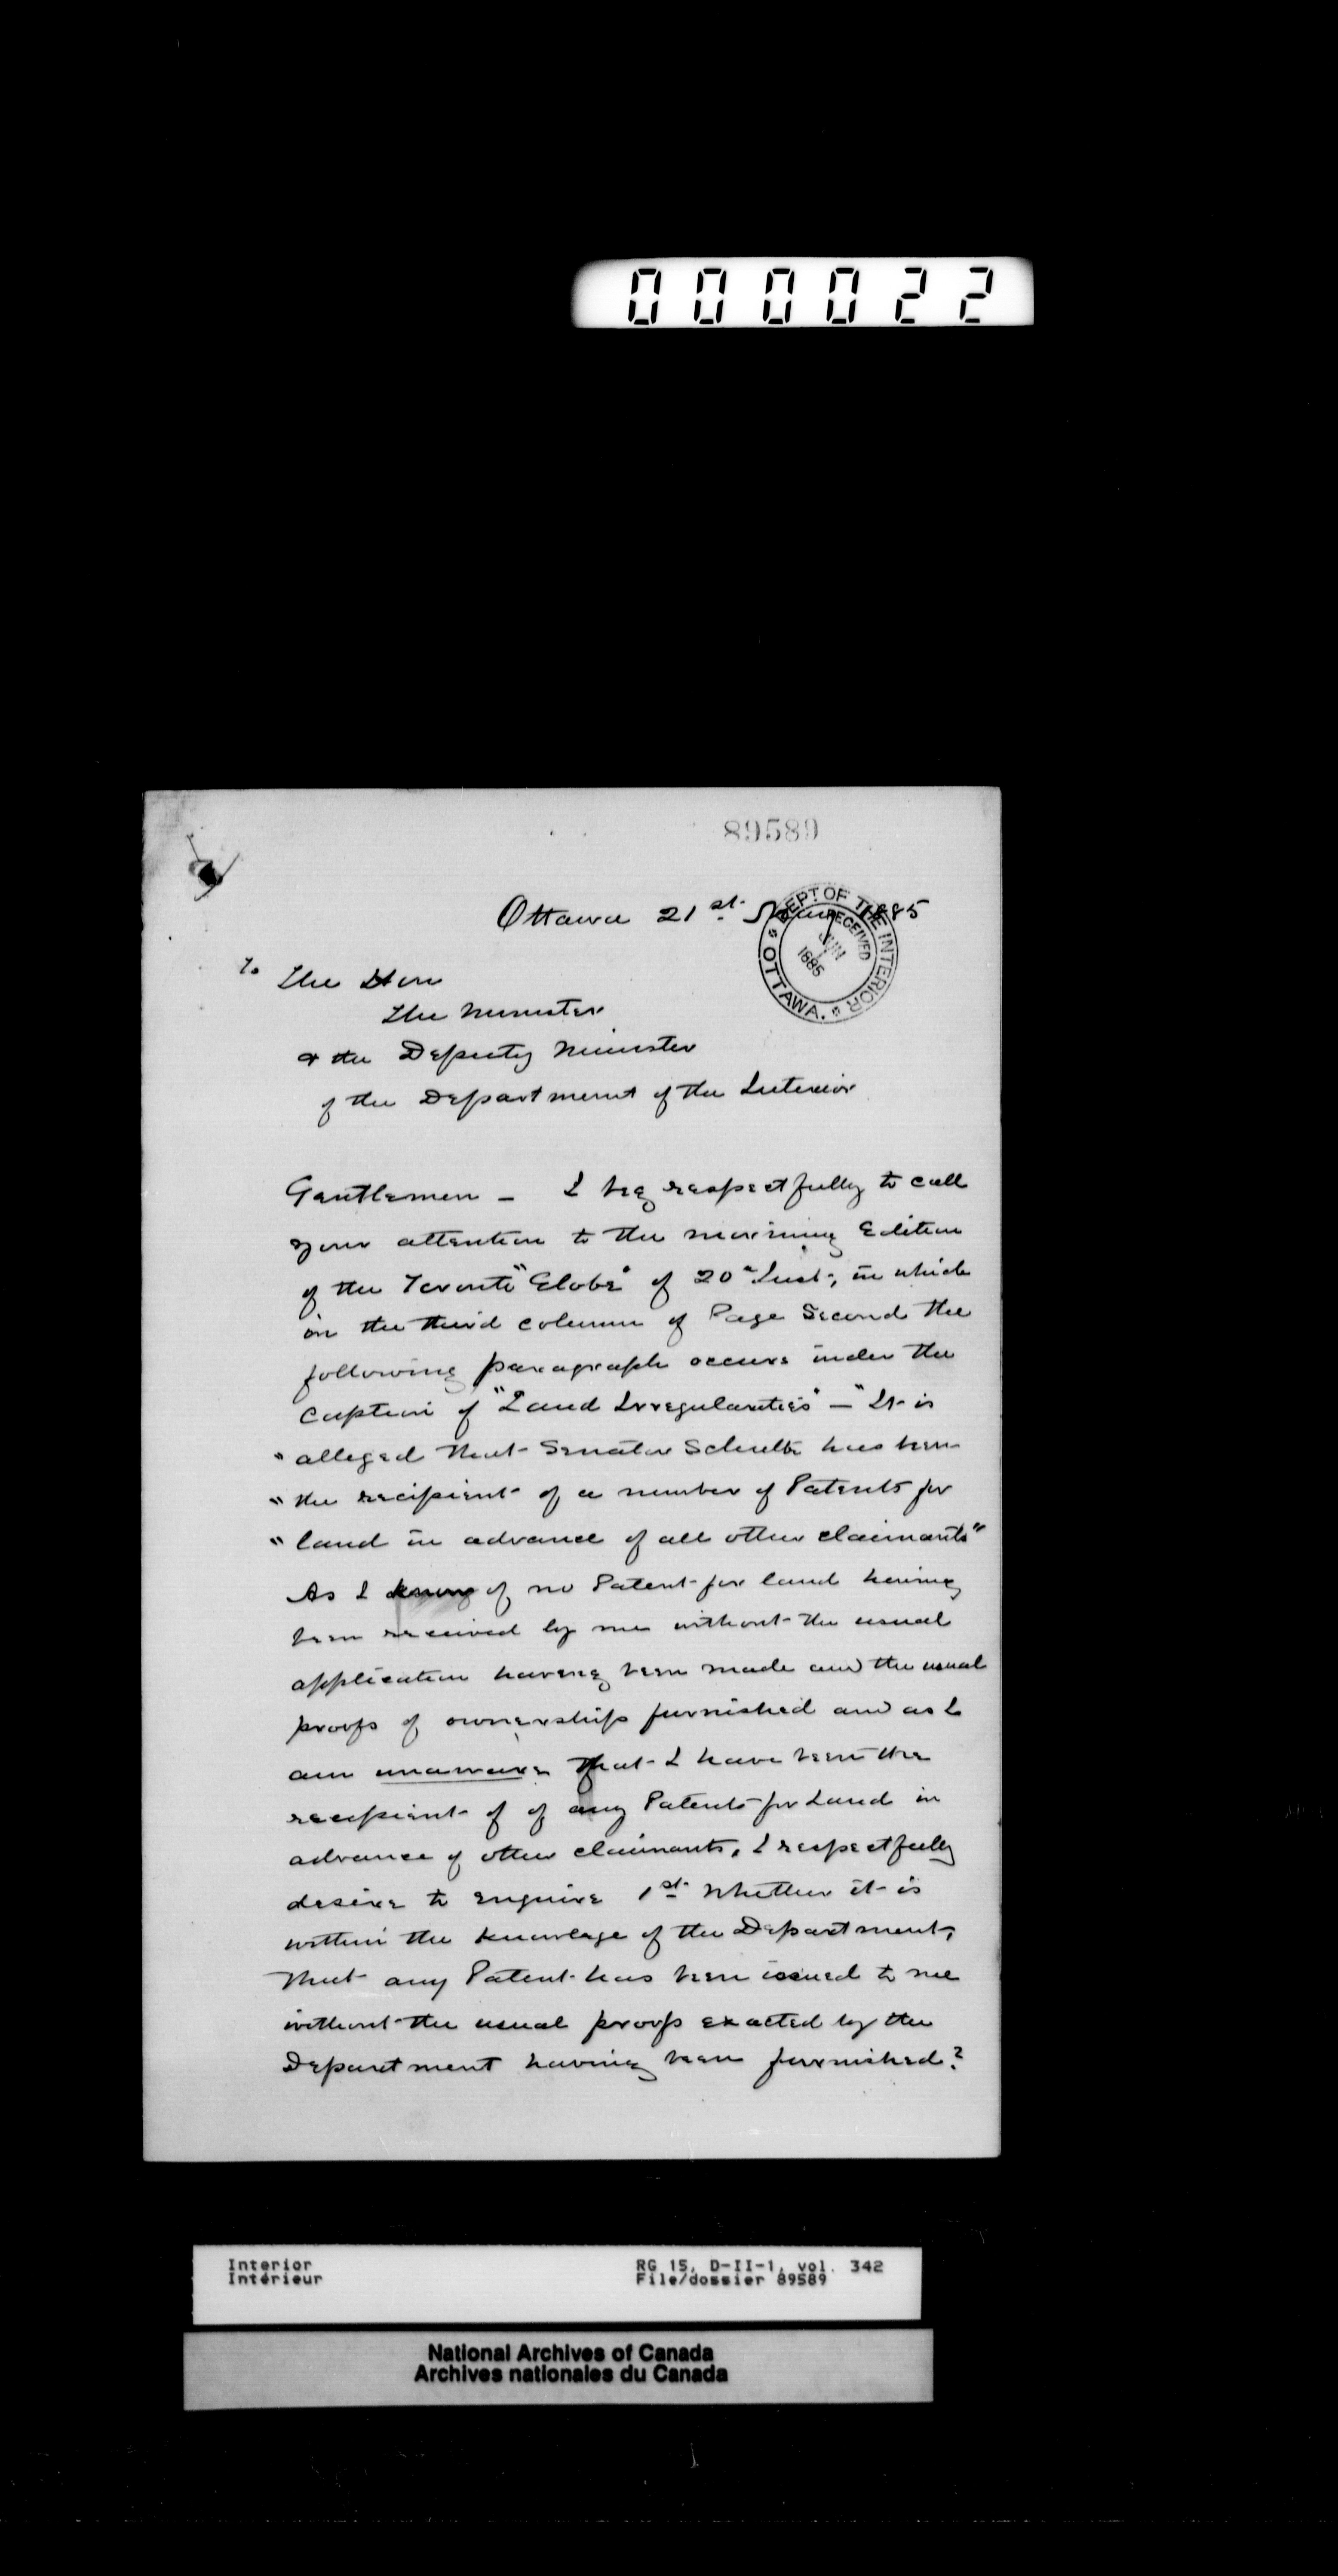 000022
89589
Ottawa 21st. 1885
DEPT. OF THE INTERIOR
RECEIVED
JUN
1885
OTTAWA.
To The Hon
The Minister
& the Deputy Minister
of the Department of the Interior
Gentlemen – I beg respectfully to call
your attention to the morning Edition
of the Toronto "Globe" of 20" Inst, in which
in the third column of Page Second the
following paragraph occurs under the
Caption of "Land Irregularities" – "It is
" alleged that Senator Schultz has been
" the recipient of a number of Patents for
" land in advance of all other claimants"
As I know of no Patent for land having
been received by me without the usual
application having been made and the usual
proofs of ownership furnished and as I
am unaware that I have been the
recipient of of any Patents for Land in
advance of other claimants, I respectfully
desire to enquire 1st. Whether it is
within the knowlage of the Department,
that any Patent has been issued to me
without the usual proofs exacted by the
Department having been furnished?
Interior RG 15, D-II-1, vol. 342
Intérieur File/dossier 89589
National Archives of Canada
Archives nationales du Canada